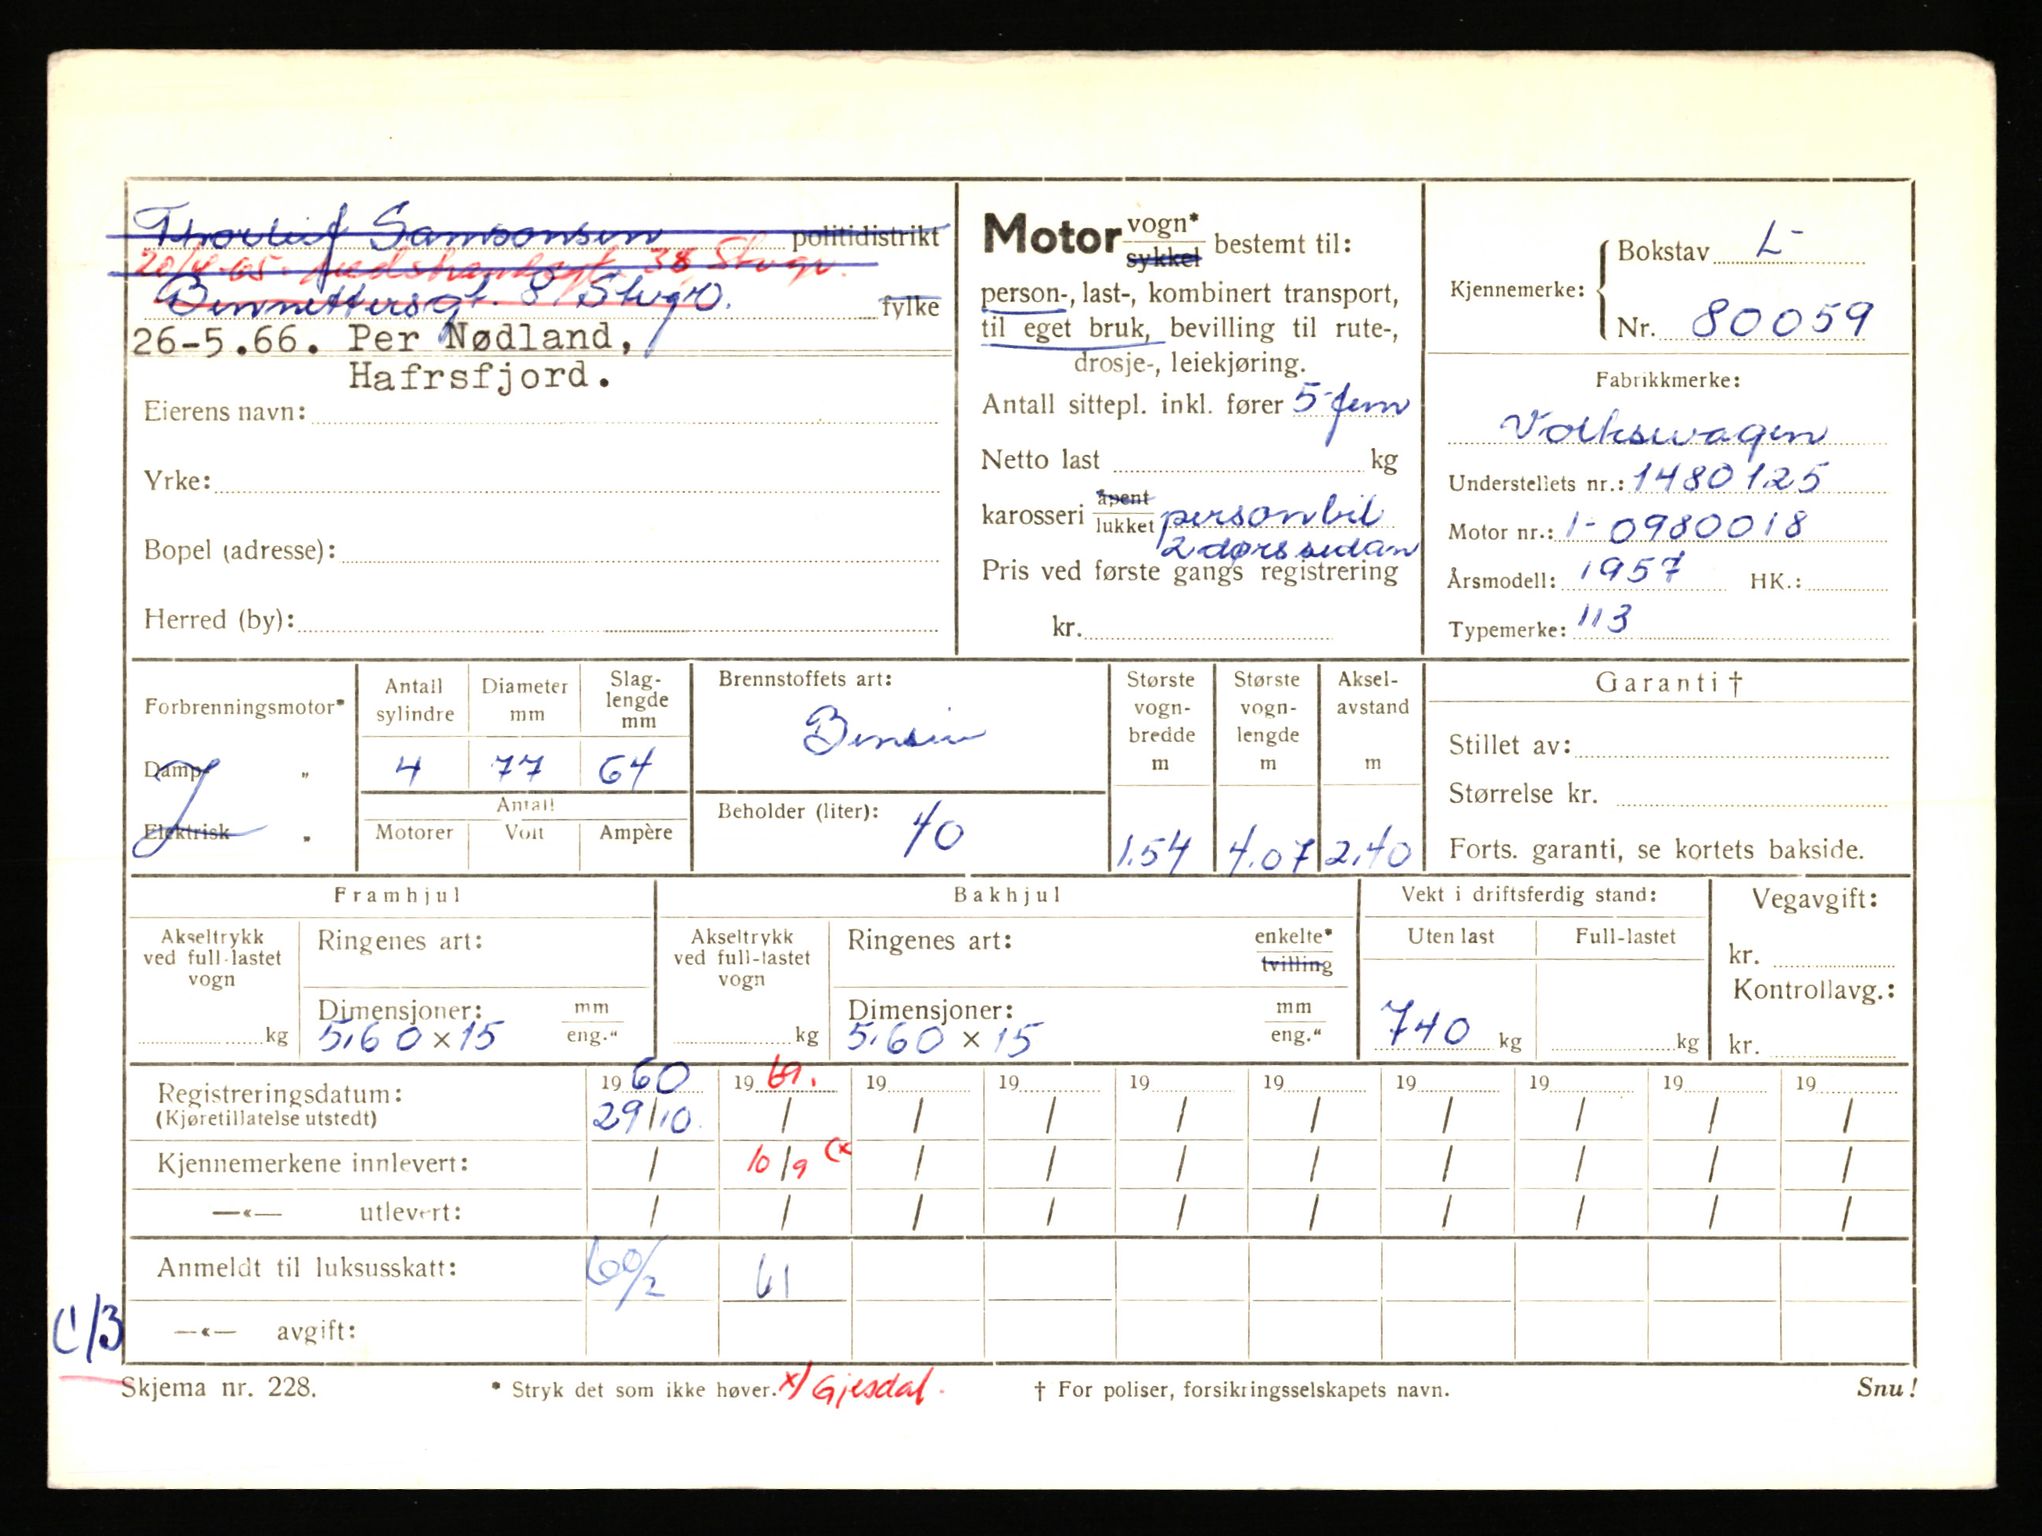 Thorleif Samsonsen politidistrikt
20/4-65. 38 Stvgr.
Bennettersgt. 8, Stvgr. fylke
26-5.66. Per Nødland,
Hafrsfjord.
Eierens navn:
Yrke:
Bopel (adresse):
Herred (by):
Motor vogn* sykkel bestemt til:
person-, last-, kombinert transport,
til eget bruk, bevilling til rute-,
drosje-, leiekjøring.
Antall sittepl. inkl. fører 5-fem
Netto last kg
karosseri åpent lukket personbil
2 dørs sedan
Pris ved første gangs registrering
kr.
Kjennemerke: Bokstav L-
Nr. 80059
Fabrikkmerke:
Volkswagen
Understellets nr.: 1480125
Motor nr.: 1-0980018
Årsmodell: 1957 HK.:
Typemerke: 113
Forbrenningsmotor*
Damp „
Elektrisk „
Antall sylindre Diameter mm Slag-lengde mm
4 77 64
Antall
Motorer Volt Ampère
Brennstoffets art:
Bensin
Beholder (liter): 40
Største vogn-bredde m
1.54
Største vogn-lengde m
4.07
Aksel-avstand m
2.40
Garanti †
Stillet av:
Størrelse kr.
Forts. garanti, se kortets bakside.
Framhjul
Akseltrykk ved full-lastet vogn
kg
Ringenes art:
Dimensjoner: mm eng."
5.60 x 15
Bakhjul
Akseltrykk ved full-lastet vogn
kg
Ringenes art: enkelte* tvilling
Dimensjoner: mm eng."
5.60 x 15
Vekt i driftsferdig stand:
Uten last Full-lastet
740 kg kg
Vegavgift:
kr.
Kontrollavg.:
kr.
Registreringsdatum: 1960 1961. 19 19 19 19 19 19 19 19
(Kjøretillatelse utstedt) 29/10. / / / / / / / / /
Kjennemerkene innlevert: / 10/9 (x / / / / / / / /
—«— utlevert: / / / / / / / / / /
Anmeldt til luksusskatt: 60/2 61
—«— avgift:
C/3
Skjema nr. 228. * Stryk det som ikke høver. x) Gjesdal. † For poliser, forsikringsselskapets navn. Snu!